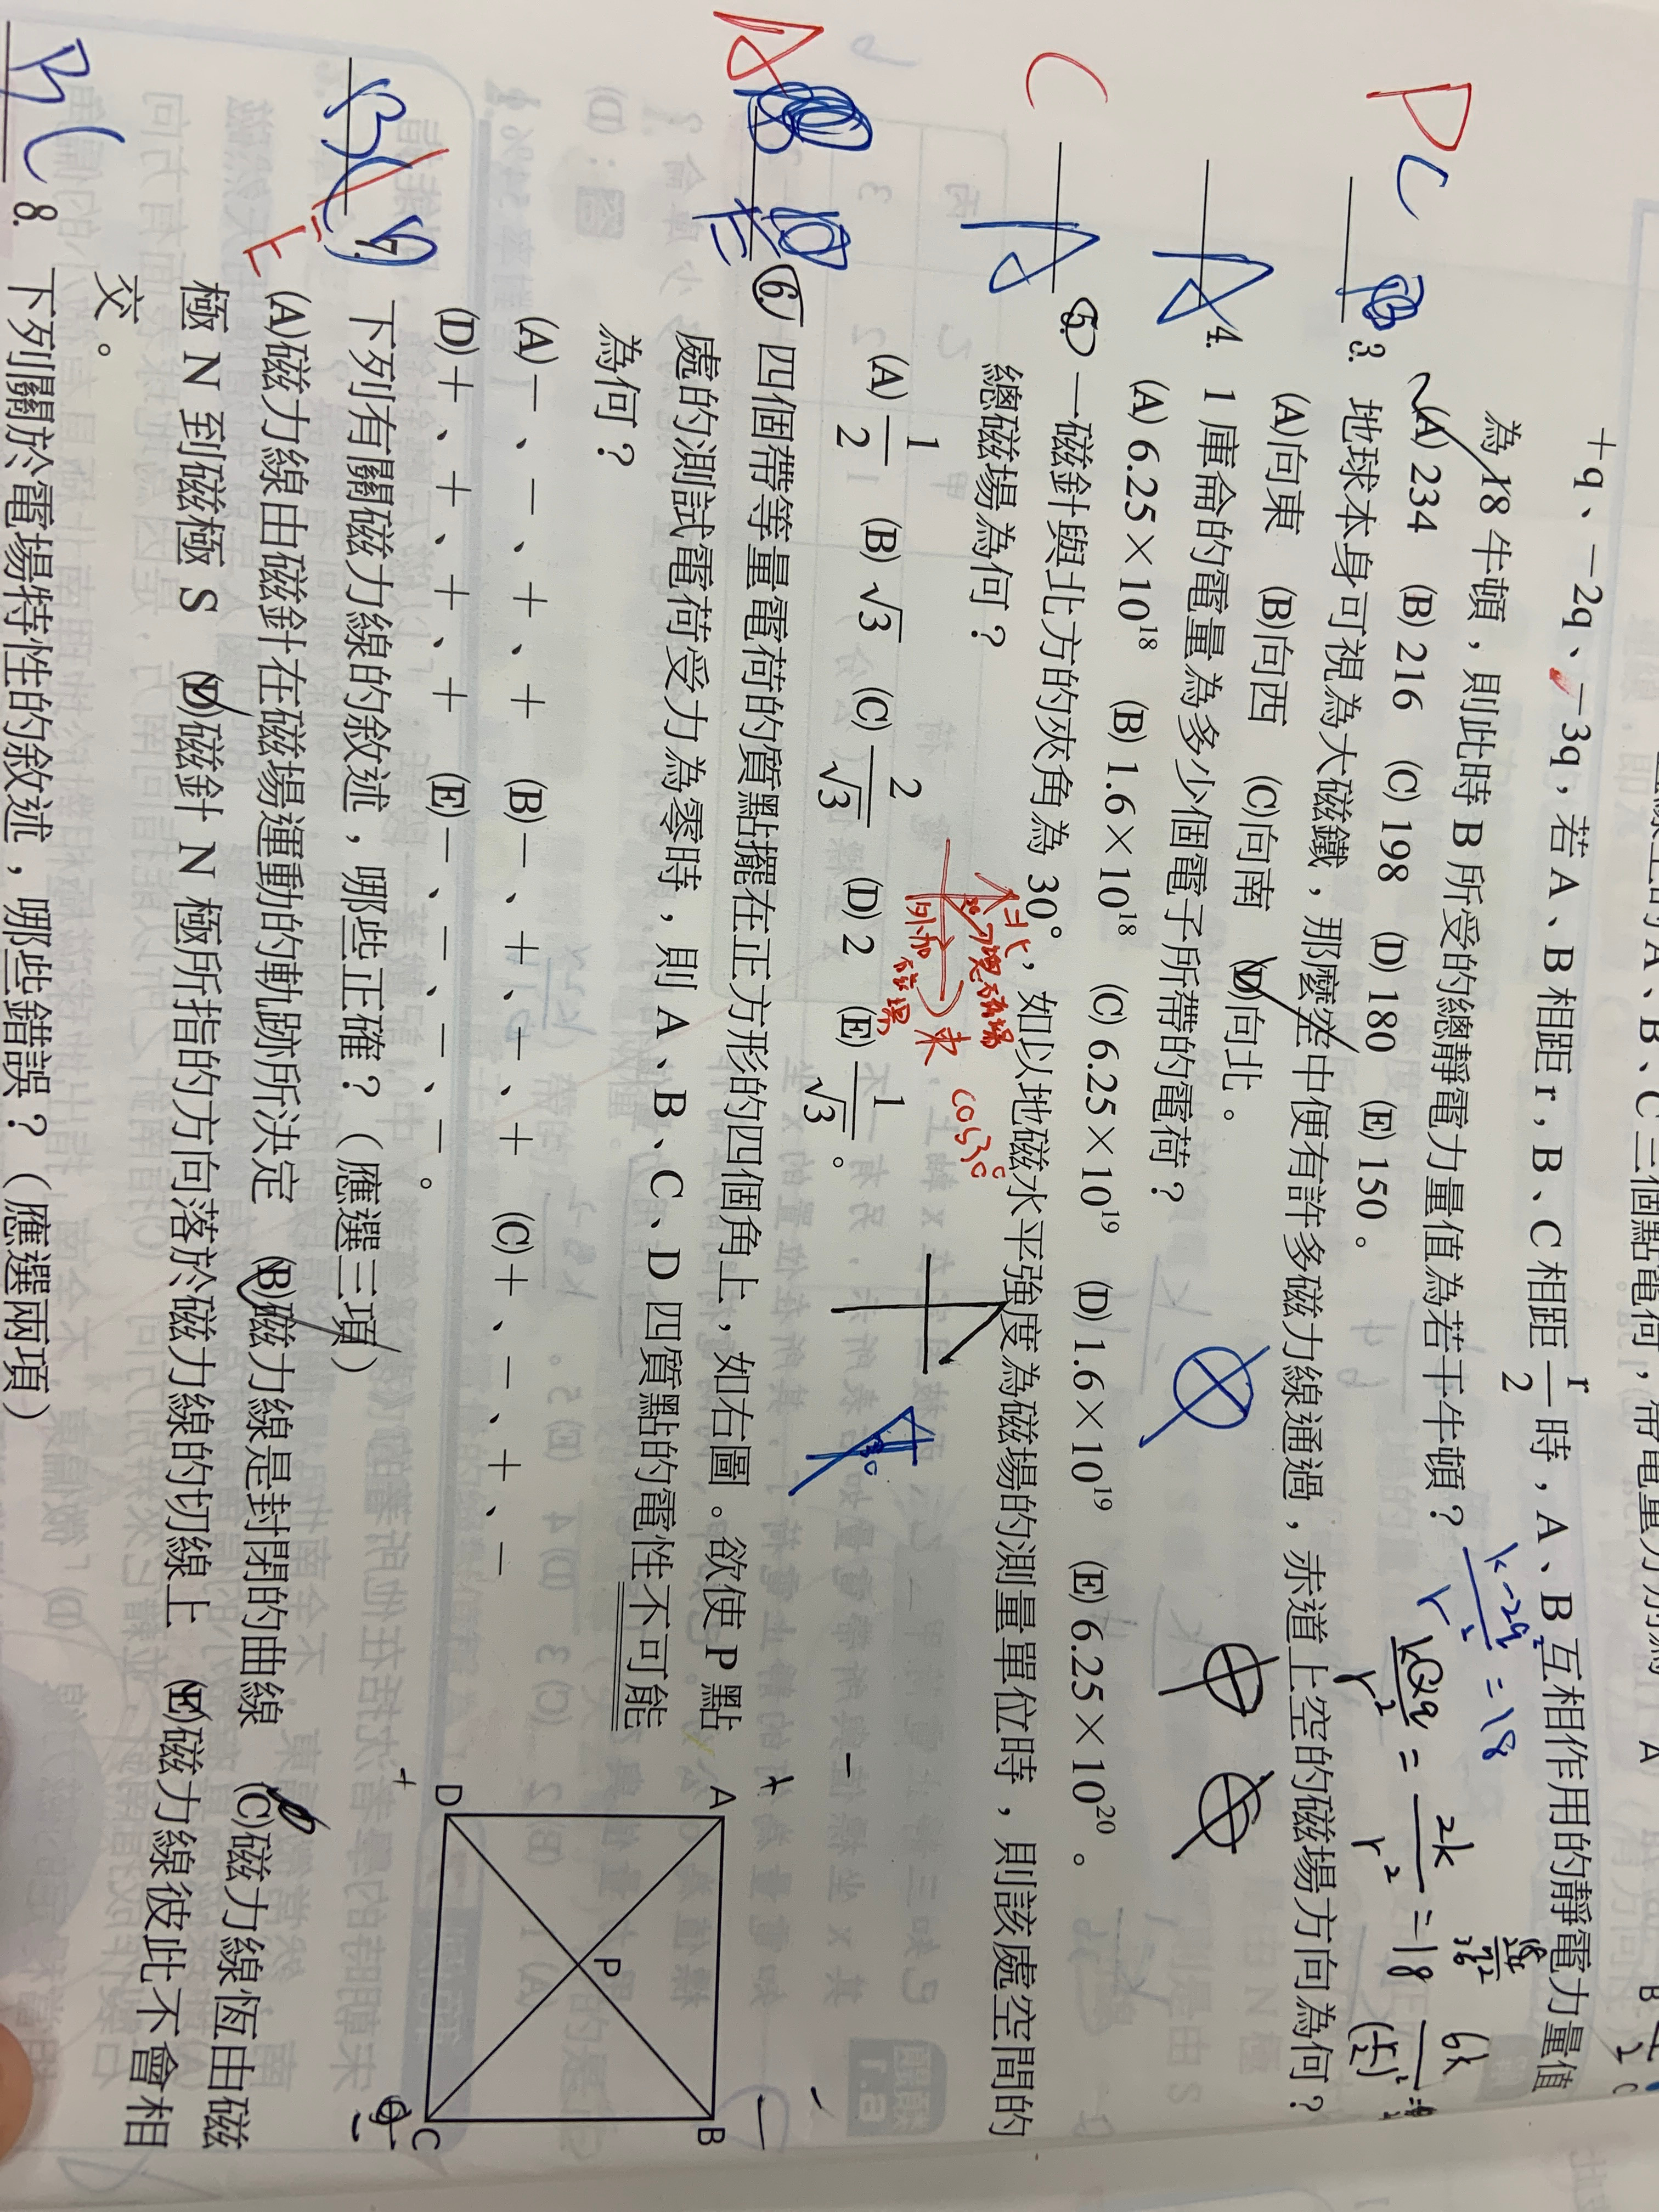 +q、-2q、-3q,若 A、B 相距 r,B、C 相距 r/2 時,A、B 互相作用的靜電力量值
為 18 牛頓,則此時 B 所受的總靜電力量值為若干牛頓?
(A) 234 (B) 216 (C) 198 (D) 180 (E) 150。
k-2q²/r² = 18
kQq/r² = 2k/r² = 18
D
C
3. 地球本身可視為大磁鐵,那麼空中便有許多磁力線通過,赤道上空的磁場方向為何?
(A)向東 (B)向西 (C)向南 (D)向北。
A
4. 1 庫侖的電量為多少個電子所帶的電荷?
(A) 6.25×10¹⁸ (B) 1.6×10¹⁸ (C) 6.25×10¹⁹ (D) 1.6×10¹⁹ (E) 6.25×10²⁰。
C
A
5. 一磁針與北方的夾角為 30°,如以地磁水平強度為磁場的測量單位時,則該處空間的
總磁場為何?
北
總磁場
外加磁場
東
cos30°
(A) 1/2 (B) √3 (C) 2/√3 (D) 2 (E) 1/√3。
6. 四個帶等量電荷的質點擺在正方形的四個角上,如右圖。欲使 P 點
處的測試電荷受力為零時,則 A、B、C、D 四質點的電性不可能
為何?
(A)-、-、+、+ (B)-、+、+、+ (C)+、-、+、-
(D)+、+、+、+ (E)-、-、-、-。
A
B
P
D
C
7. 下列有關磁力線的敘述,哪些正確?(應選三項)
(A)磁力線由磁針在磁場運動的軌跡所決定 (B)磁力線是封閉的曲線 (C)磁力線恆由磁
極 N 到磁極 S (D)磁針 N 極所指的方向落於磁力線的切線上 (E)磁力線彼此不會相
交。
BC
8. 下列關於電場特性的敘述,哪些錯誤?(應選兩項)